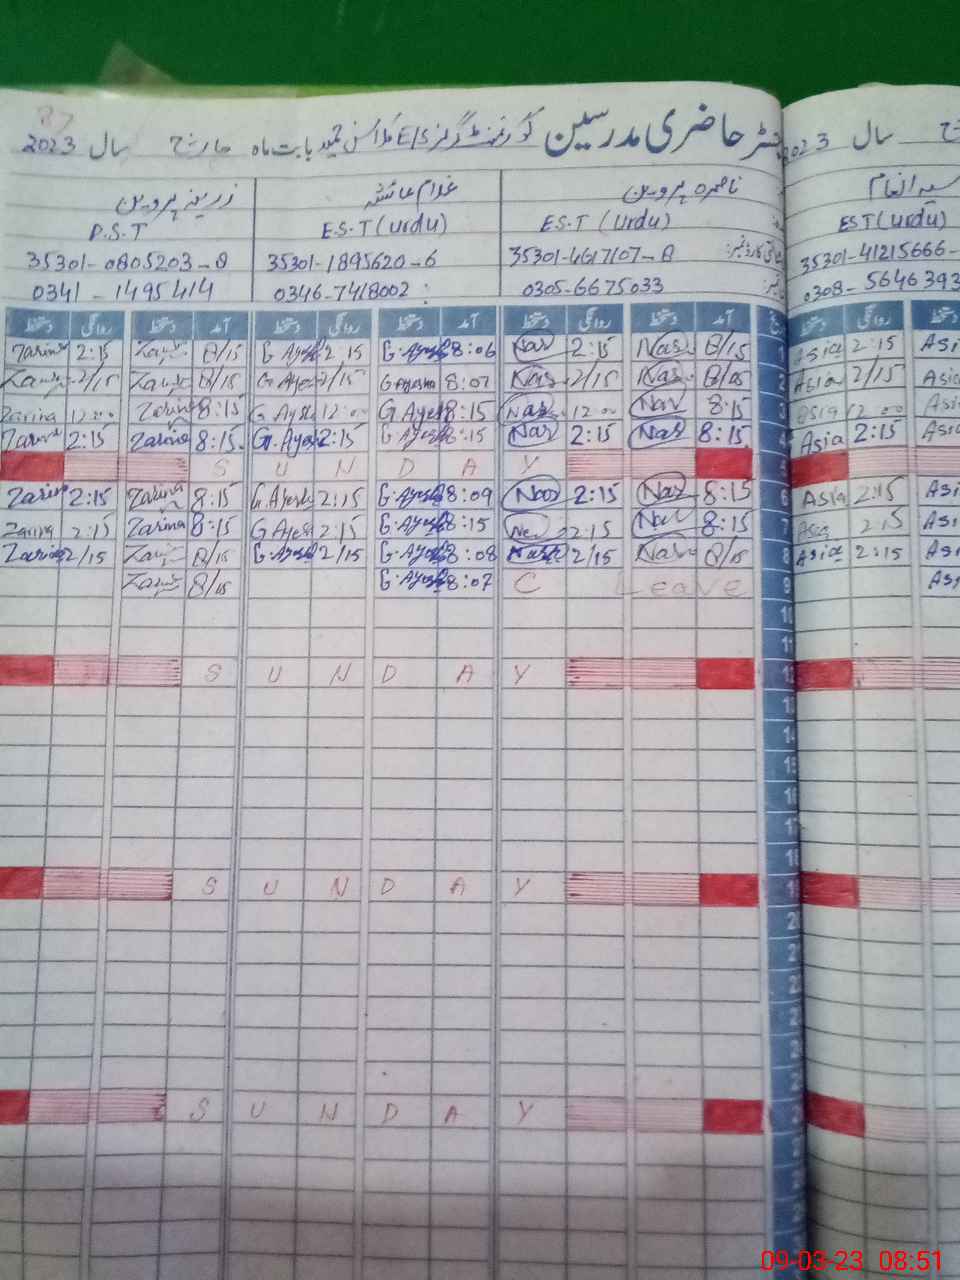 رجسٹر حاضری مدرسین گورنمنٹ گرلز E/S بابت ماہ مارچ سال 2023
سال 2023
زرینہ پروین غلام عائشہ ناصرہ پروین
P.S.T E.S.T (Urdu) E.S.T (Urdu) EST (Urdu)
35301-0805203-8 35301-1895620-6 35301-4617107-8 35301-41215666-
0341-1495414 0346-7418002 0305-6675033 0308-5646393
دستخط روانگی دستخط آمد دستخط روانگی دستخط آمد دستخط روانگی دستخط آمد دستخط روانگی
Zarina 2:15 8/15 G.Ayesha 2:15 G.Ayesha 8:06 Nas 2:15 Nas 8/15 1 Asia 2:15
2/15 8/15 G.Ayesha 2/15 G.Ayesha 8:07 Nas 2/15 Nas 8/15 2 Asia 2/15 Asia
Zarina 12:00 Zarina 8:15 G.Ayesha 12:00 G.Ayesha 8:15 Nas 12:00 Nas 8:15 3 Asia 12:00
Zarina 2:15 Zarina 8:15 G.Ayesha 2:15 G.Ayesha 8:15 Nas 2:15 Nas 8:15 4 Asia 2:15
S U N D A Y 5
Zarina 2:15 Zarina 8:15 G.Ayesha 2:15 G.Ayesha 8:09 Nas 2:15 Nas 8:15 6 Asia 2:15
Zarina 2:15 Zarina 8:15 G.Ayesha 2:15 G.Ayesha 8:15 2:15 Nas 8:15 7 Asia 2:15
Zarina 2/15 8/15 G.Ayesha 2/15 G.Ayesha 8:08 2/15 Nas 8/15 8 Asia 2:15
8/15 G.Ayesha 8:07 C Leave 9
10
11
S U N D A Y 12
13
14
15
16
17
18
S U N D A Y 19
20
S U N D A Y
09-03-23 08:51